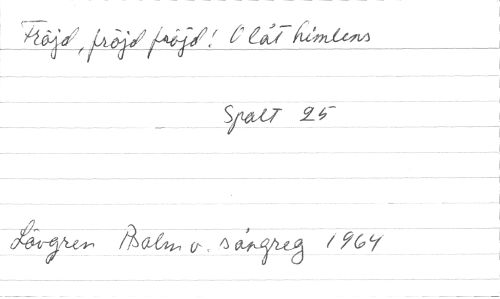 Fröjd, fröjd fröjd! O låt himlens
Spalt 25
Lövgren Psalm o. sångreg 1964